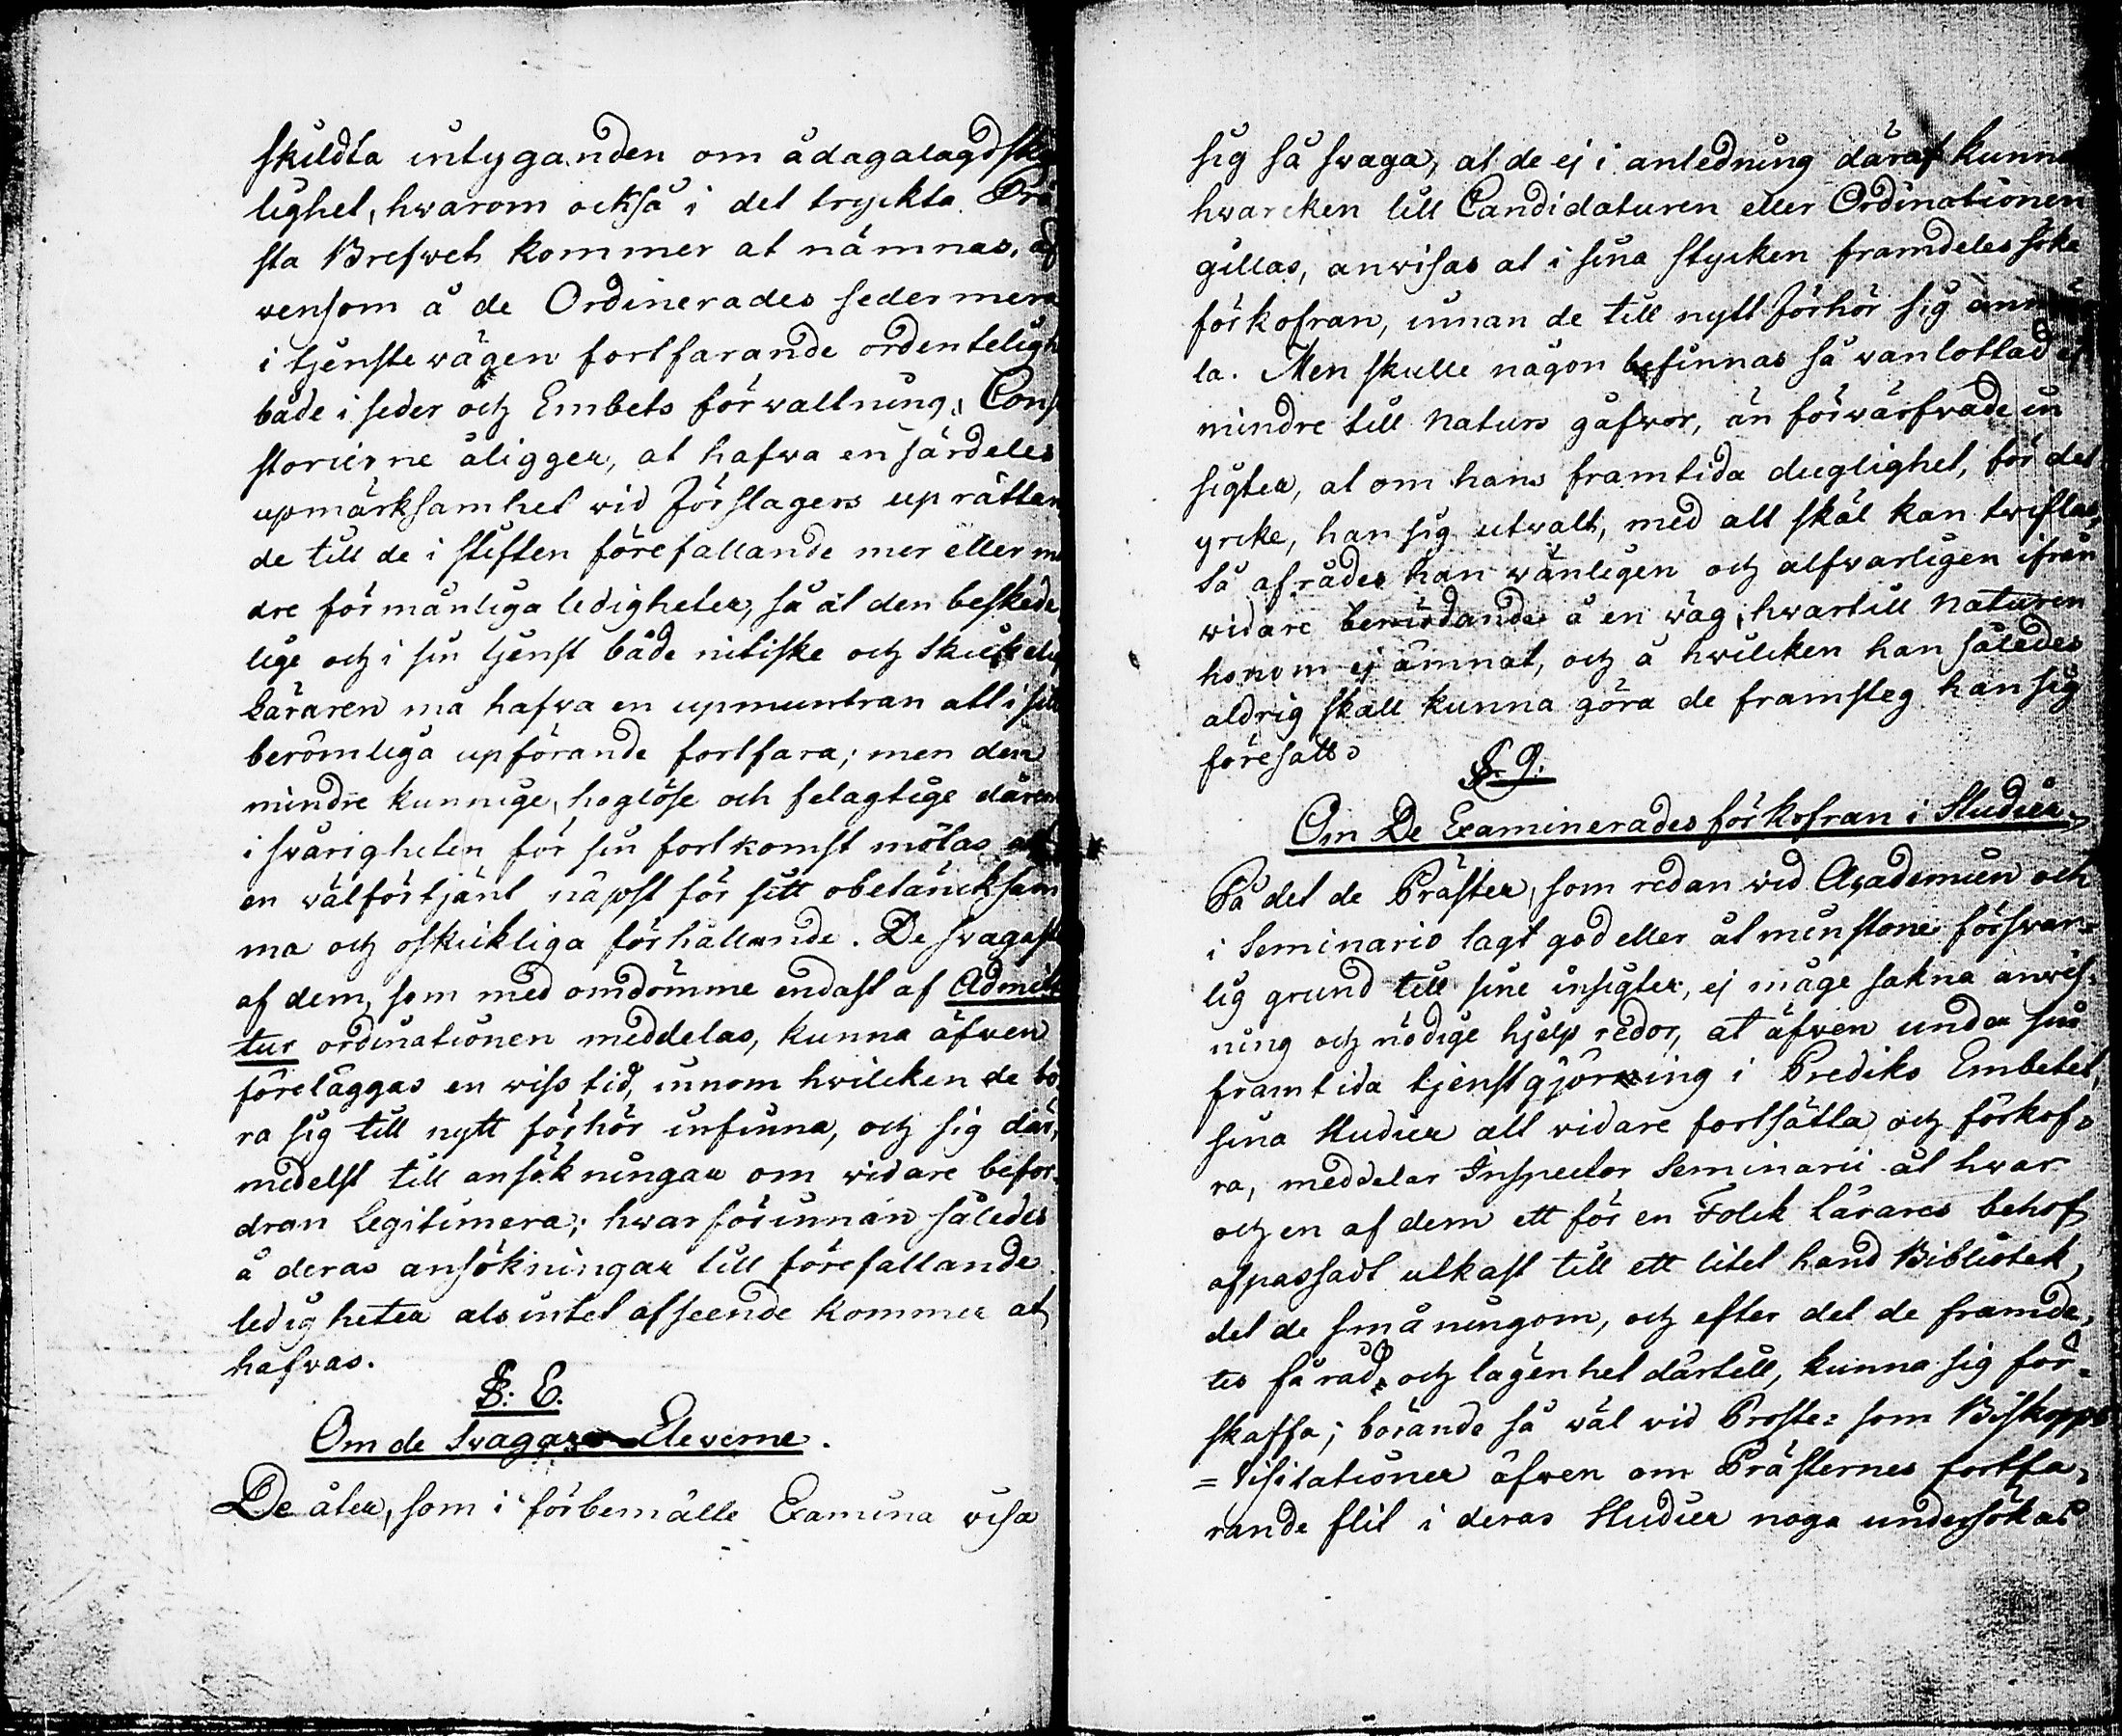 skildta intyganden om ådagalagd
lighet, hvarom också i det tryckta
sta Brefwet kommer at nämnas,
vensom å de Ordinerades sedermera
i tjenstevägen fortfarande ordentelig
både i seder och Embets förvaltning. Con
storierne åligger, at hafva en särdeles
upmärksamhet vid Förslagers uprättan
de till de i stiften förefallande mer eller
dre förmånliga ledigheter, så at den beskede
lige och i sin tjenst både nitiske och skickelige
Läraren må hafva en upmuntran att i sitt
berömliga upförande fortfara; men den
mindre kunnige, hoglöse och felagtige
i svårigheten för sin fortkomst mötas
en välförtjänt näpst för sitt obetäncksam
ma och oskickliga förhållande. De svagast
af dem, som med omdömme endast af Admit
tur ordinationen meddelas, kunna äfven
föreläggas en viss tid, innom hvilcken de bö
ra sig till nytt förhör infinna, och sig där,
medelst till ansökningar om vidare befor-
dran Legitimera; hvarförinnan således
å deras ansökningar till förefallande
ledigheter als intet afseende kommer at
hafvas.
§: 8.
Om de svagare Eleverne.
De åter, som i förbemälte Examina visa
sig så svaga, at de ej i anledning däraf kunna
hvarcken till Candidaturen eller Ordinationen
gillas, anvisas at i sina stycken framdeles söka
förkofran, innan de till nytt Förhör sig anmä
la. Men skulle någon befinnas så vanlottad ej
mindre till Naturs gåfvor, än förvärfvade in
sigter, at om hans framtida duglighet, för det
yrcke, han sig utvalt, med alt skäl kan twiflas,
Så afrådes han vänligen och alfvarligen ifrån
vidare beträdande å en väg, hvartill Naturen
honom ej ämnat, och å hvilcken han således
aldrig skall kunna göra de framsteg han sig
föresatt.
§. 9.
Om De Examinerades förkofran i Studier.
På det de Präster, som redan vid Academien och
i Seminario lagt god eller åtminstone försvar-
lig grund till sine insigter, ej måge sakna anvis-
ning och nödige hjelpredor, at äfven under sin
framtida tjenstgjörning i Prediko Embetet,
sina Studier alt vidare fortsätta och förkof-
ra, meddelar Inspector Seminarii åt hvar
och en af dem ett för en Folck Lärares behof
afpassadt utkast till ett litet hand Bibliotek,
det de småningom, och efter det de framde-
les få råd och lägenhet därtill, kunna sig för-
skaffa; börande så väl vid Proste= som Biskopps
=Visitationer äfven om Prästernes fortfa-
rande flit i deras Studier noga undersökas